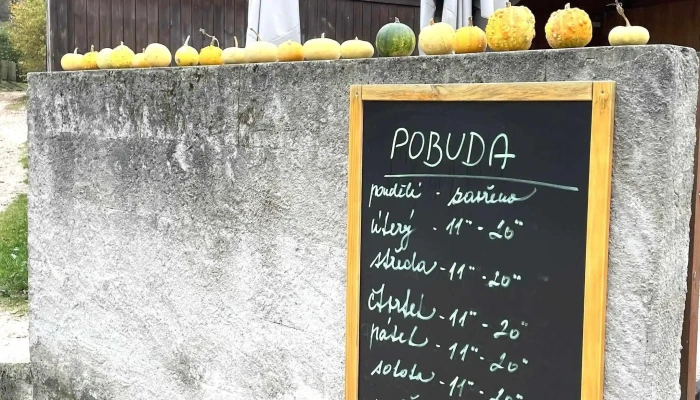 POBUDA
pondělí - zavřeno
úterý - 11⁰⁰ - 20⁰⁰
středa - 11⁰⁰ - 20⁰⁰
čtvrtek - 11⁰⁰ - 20⁰⁰
pátek - 11⁰⁰ - 20⁰⁰
sobota - 11⁰⁰ - 20⁰⁰